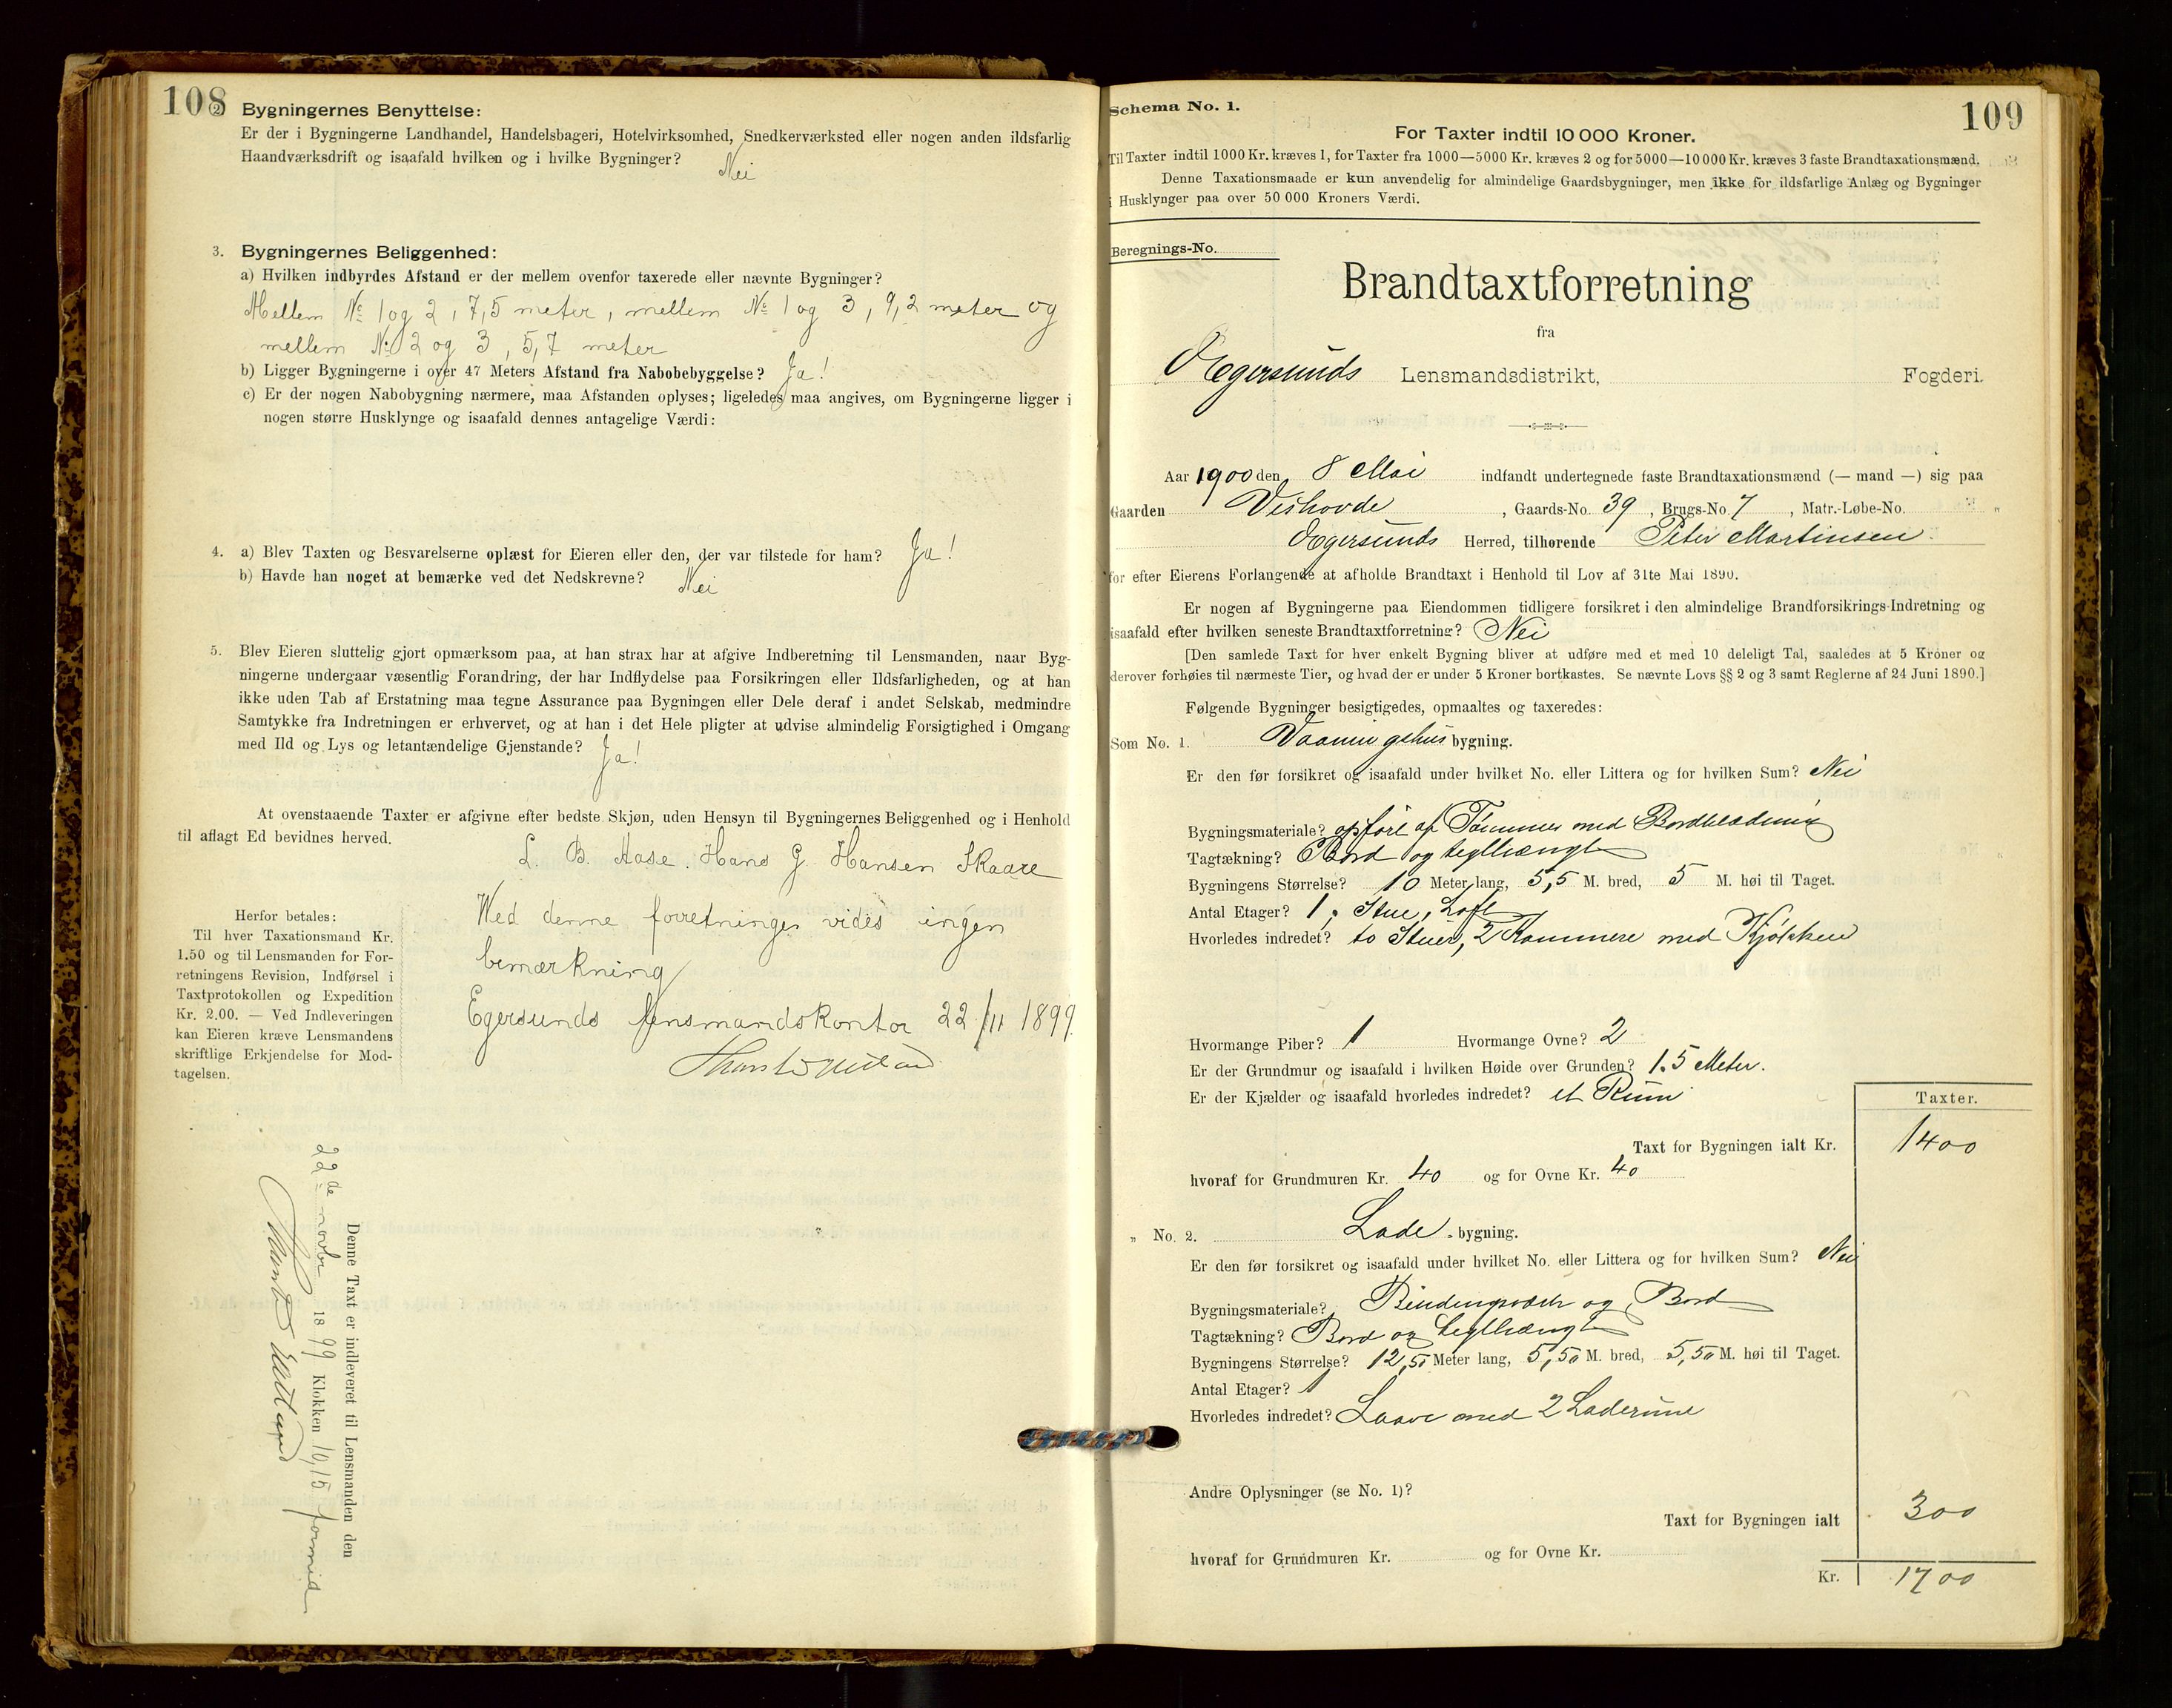 108
2 Bygningernes Benyttelse:
Er der i Bygningerne Landhandel, Handelsbageri, Hotelvirksomhed, Snedkerværksted eller nogen anden ildsfarlig
Haandværksdrift og isaafald hvilken og i hvilke Bygninger? Nei
3. Bygningernes Beliggenhed:
a) Hvilken indbyrdes Afstand er der mellem ovenfor taxerede eller nævnte Bygninger?
Mellem No 1 og 2, 7,5 meter, mellem No 1 og 3, 9,2 meter og
mellem No 2 og 3, 5,7 meter
b) Ligger Bygningerne i over 47 Meters Afstand fra Nabobebyggelse? Ja!
c) Er der nogen Nabobygning nærmere, maa Afstanden oplyses; ligeledes maa angives, om Bygningerne ligger i
nogen større Husklynge og isaafald dennes antagelige Værdi:
4. a) Blev Taxten og Besvarelserne oplæst for Eieren eller den, der var tilstede for ham? Ja!
b) Havde han noget at bemærke ved det Nedskrevne? Nei
5. Blev Eieren sluttelig gjort opmærksom paa, at han strax har at afgive Indberetning til Lensmanden, naar Byg-
ningerne undergaar væsentlig Forandring, der har Indflydelse paa Forsikringen eller Ildsfarligheden, og at han
ikke uden Tab af Erstatning maa tegne Assurance paa Bygningen eller Dele deraf i andet Selskab, medmindre
Samtykke fra Indretningen er erhvervet, og at han i det Hele pligter at udvise almindelig Forsigtighed i Omgang
med Ild og Lys og letantændelige Gjenstande? Ja!
At ovenstaaende Taxter er afgivne efter bedste Skjøn, uden Hensyn til Bygningernes Beliggenhed og i Henhold
til aflagt Ed bevidnes herved.
L. B. Aase. Hans G. Hansen Skaare
Herfor betales:
Til hver Taxationsmand Kr.
1.50 og til Lensmanden for For-
retningens Revision, Indførsel i
Taxtprotokollen og Expedition
Kr. 2.00. — Ved Indleveringen
kan Eieren kræve Lensmandens
skriftlige Erkjendelse for Mod-
tagelsen.
Ved denne forretninger vides ingen
bemærkning
Egersunds lensmandskontor 22/11 1899.
Denne Taxt er indleveret til Lensmanden den
22de novbr 1899 Klokken 10,15 formid
109
Schema No. 1.
For Taxter indtil 10 000 Kroner.
Til Taxter indtil 1000 Kr. kræves 1, for Taxter fra 1000—5000 Kr. kræves 2 og for 5000—10 000 Kr. kræves 3 faste Brandtaxationsmænd.
Denne Taxationsmaade er kun anvendelig for almindelige Gaardsbygninger, men ikke for ildsfarlige Anlæg og Bygninger
i Husklynger paa over 50 000 Kroners Værdi.
Beregnings-No.
Brandtaxtforretning
fra
Egersunds Lensmandsdistrikt, Fogderi.
Aar 1900 den 8 Mai indfandt undertegnede faste Brandtaxationsmænd (— mand —) sig paa
Gaarden Veshovde, Gaards-No. 39, Brugs-No. 7, Matr.-Løbe-No.
Egersunds Herred, tilhørende Peter Martinsen
for efter Eierens Forlangende at afholde Brandtaxt i Henhold til Lov af 31te Mai 1890.
Er nogen af Bygningerne paa Eiendommen tidligere forsikret i den almindelige Brandforsikrings-Indretning og
isaafald efter hvilken seneste Brandtaxtforretning? Nei
[Den samlede Taxt for hver enkelt Bygning bliver at udføre med et med 10 deleligt Tal, saaledes at 5 Kroner og
derover forhøies til nærmeste Tier, og hvad der er under 5 Kroner bortkastes. Se nævnte Lovs §§ 2 og 3 samt Reglerne af 24 Juni 1890.]
Følgende Bygninger besigtigedes, opmaaltes og taxeredes:
Som No. 1. Vaaningshus bygning.
Er den før forsikret og isaafald under hvilket No. eller Littera og for hvilken Sum? Nei
Bygningsmateriale? opført af Tømmer med Bordklædning
Tagtækning? Bord og teglhængt
Bygningens Størrelse? 10 Meter lang, 5,5 M. bred, 5 M. høi til Taget.
Antal Etager? 1, Stue, Loft
Hvorledes indredet? to Stuer, 2 Kammere med Kjøkken
Hvormange Piber? 1 Hvormange Ovne? 2
Er der Grundmur og isaafald i hvilken Høide over Grunden? 1.5 Meter.
Er der Kjælder og isaafald hvorledes indredet? et Rum
Taxter.
Taxt for Bygningen ialt Kr. 1400
hvoraf for Grundmuren Kr. 40 og for Ovne Kr. 40
" No. 2. Lade bygning.
Er den før forsikret og isaafald under hvilket No. eller Littera og for hvilken Sum? Nei
Bygningsmateriale? og Bord
Tagtækning? Bord og teglhængt
Bygningens Størrelse? 12,50 Meter lang, 5,50 M. bred, 5,50 M. høi til Taget.
Antal Etager? 1
Hvorledes indredet? Laave med 2 Laderume
Andre Oplysninger (se No. 1)?
Taxt for Bygningen ialt 300
hvoraf for Grundmuren Kr. og for Ovne Kr.
Kr. 1700